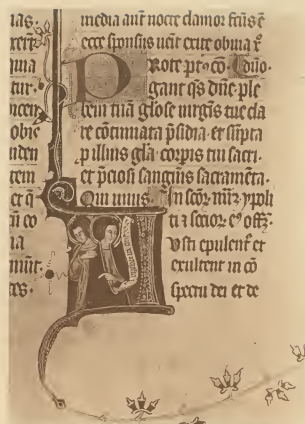 ias·
xerit
quia
tur·
incen
obic
nden
tem
et q
ū co
ia
mūt·
tes·
media aūt nocte clamor fctūs ē
ecce sponsus uēit exite obuia x̄
Rote pt· co· duo
gant q̄s dn̄e ple
tem tuā gliose uirgīs tue cla
re cōtinuata p̄sidia· et sūpta
p illius glā· corpis tui sacri·
et p̄ciosi sanguīs sacramēta·
Qui uiuis· In scōꝝ mꝛ̄ꝝ ypoli
ti ⁊ socioꝝ eꝰ offꝫ·
Vsti epulent̄ et
exultent in cō
spectu dei et de